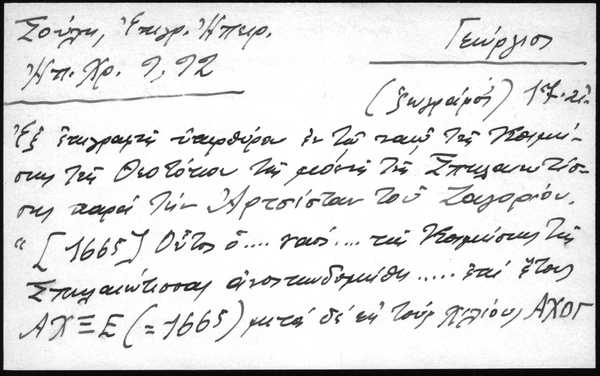 Σούλη, Ἐπιγρ. Ἠπειρ.
Ἠπ. Χρ. 9, 92
Γεώργιος
(ζωγράφος) 17. αἰ.
Ἐξ ἐπιγραφῆς ὑπερθύρου ἐν τῷ ναῷ τῆς Κοιμή-
σεως τῆς Θεοτόκου τῆς μονῆς τῆς Σπηλαιωτίσ-
σης παρὰ τὴν Ἀρτσίσταν τοῦ Ζαγορίου.
"[1665] Οὗτος ὁ .... ναός .... τῆς Κοιμήσεως τῆς
Σπηλαιωτίσσας ἀνοικοδομήθη ..... ἐπὶ ἔτους
ΑΧΞΕ (=1665) μετὰ δὲ εἰς τοὺς χιλίους ΑΧΟΓ